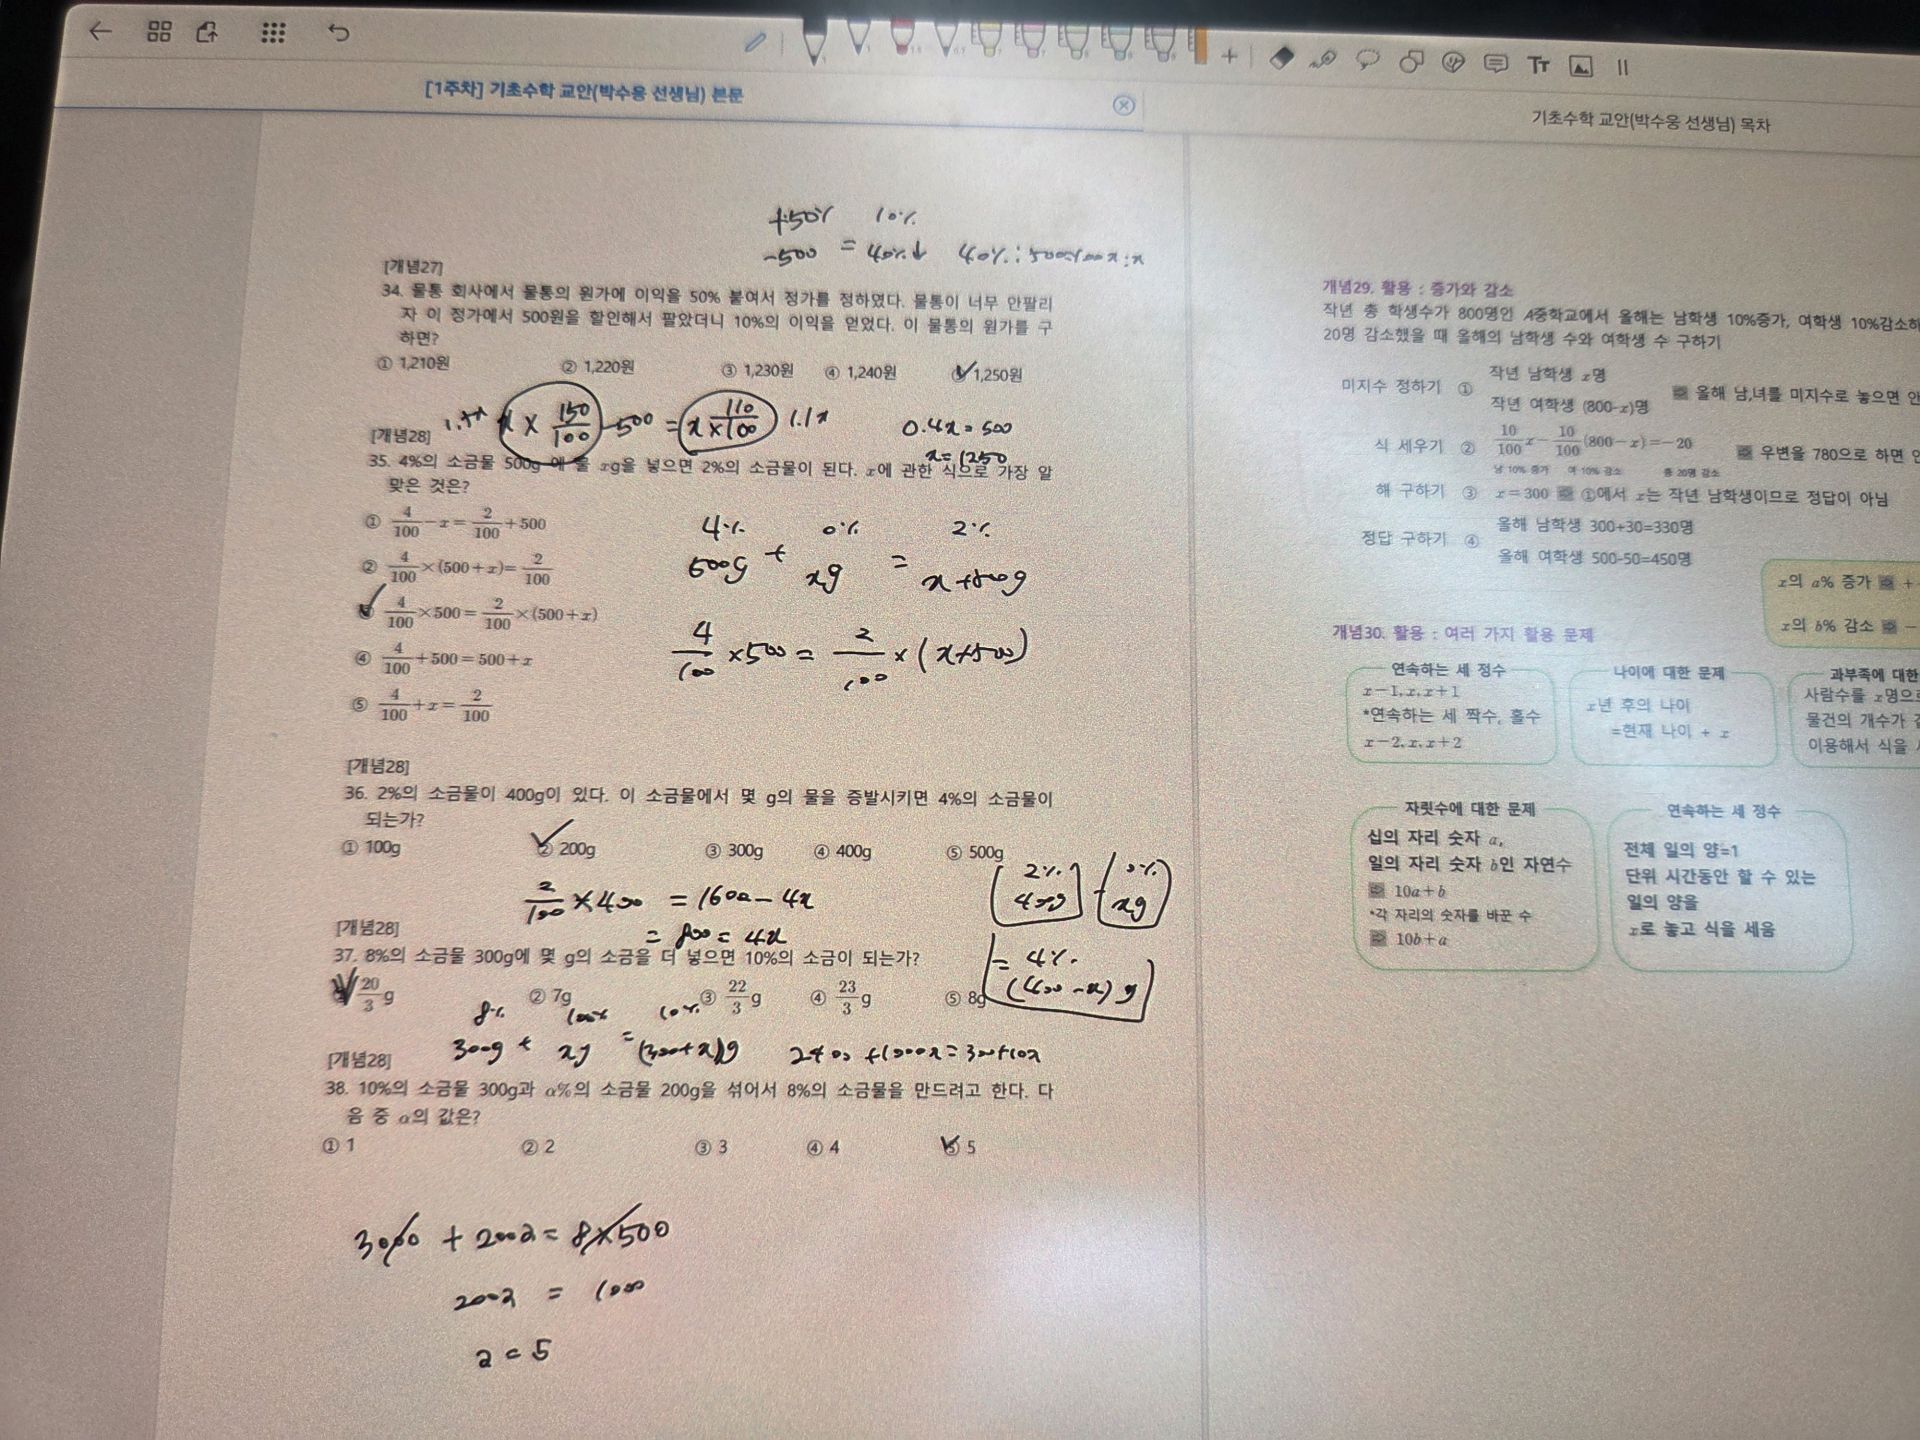 [1주차] 기초수학 교안(박수용 선생님) 본문
+50% 10%
[개념27]
34. 물통 회사에서 물통의 원가에 이익을 50% 붙여서 정가를 정하였다. 물통이 너무 안팔리
자 이 정가에서 500원을 할인해서 팔았더니 10%의 이익을 얻었다. 이 물통의 원가를 구
하면?
① 1,210원 ② 1,220원 ③ 1,230원 ④ 1,240원 1,250원
x × 150/100 - 500 = x × 110/100 1.1x
0.4x = 500
x = 1250
[개념28]
35. 4%의 소금물 500g 에 물 xg을 넣으면 2%의 소금물이 된다. x에 관한 식으로 가장 알
맞은 것은?
① 4/100 - x = 2/100 + 500
② 4/100 × (500 + x) = 2/100
4/100 × 500 = 2/100 × (500 + x)
④ 4/100 + 500 = 500 + x
⑤ 4/100 + x = 2/100
4% 0% 2%
500g + xg = x+500g
4/100 × 500 = 2/100 × (x+500)
[개념28]
36. 2%의 소금물이 400g이 있다. 이 소금물에서 몇 g의 물을 증발시키면 4%의 소금물이
되는가?
① 100g ② 200g ③ 300g ④ 400g ⑤ 500g
2/100 × 400 = 1600 - 4x
= 800 = 4x
2% 0%
400g - xg
= 4%
(400 - x) g
[개념28]
37. 8%의 소금물 300g에 몇 g의 소금을 더 넣으면 10%의 소금이 되는가?
20/3 g ② 7g ③ 22/3 g ④ 23/3 g ⑤ 8g
8% 100% 10%
300g + xg = (300+x)g
[개념28]
38. 10%의 소금물 300g과 α%의 소금물 200g을 섞어서 8%의 소금물을 만드려고 한다. 다
음 중 α의 값은?
① 1 ② 2 ③ 3 ④ 4 ⑤ 5
3000 + 200a = 8×500
200a = 1000
a = 5
기초수학 교안(박수웅 선생님) 목차
개념29. 활용 : 증가와 감소
작년 총 학생수가 800명인 A중학교에서 올해는 남학생 10%증가, 여학생 10%감소하
20명 감소했을 때 올해의 남학생 수와 여학생 수 구하기
미지수 정하기 ① 작년 남학생 x명
작년 여학생 (800-x)명
올해 남,녀를 미지수로 놓으면 안
식 세우기 ② 10/100 x - 10/100 (800-x) = -20
우변을 780으로 하면 안
남 10% 증가 여 10% 감소 총 20명 감소
해 구하기 ③ x=300 ①에서 x는 작년 남학생이므로 정답이 아님
정답 구하기 ④ 올해 남학생 300+30=330명
올해 여학생 500-50=450명
x의 a% 증가 +
x의 b% 감소 -
개념30. 활용 : 여러 가지 활용 문제
연속하는 세 정수
x-1, x, x+1
*연속하는 세 짝수, 홀수
x-2, x, x+2
나이에 대한 문제
x년 후의 나이
=현재 나이 + x
과부족에 대한
사람수를 x명으로
물건의 개수가
이용해서 식을
자릿수에 대한 문제
십의 자리 숫자 a,
일의 자리 숫자 b인 자연수
10a+b
*각 자리의 숫자를 바꾼 수
10b+a
연속하는 세 정수
전체 일의 양=1
단위 시간동안 할 수 있는
일의 양을
x로 놓고 식을 세움